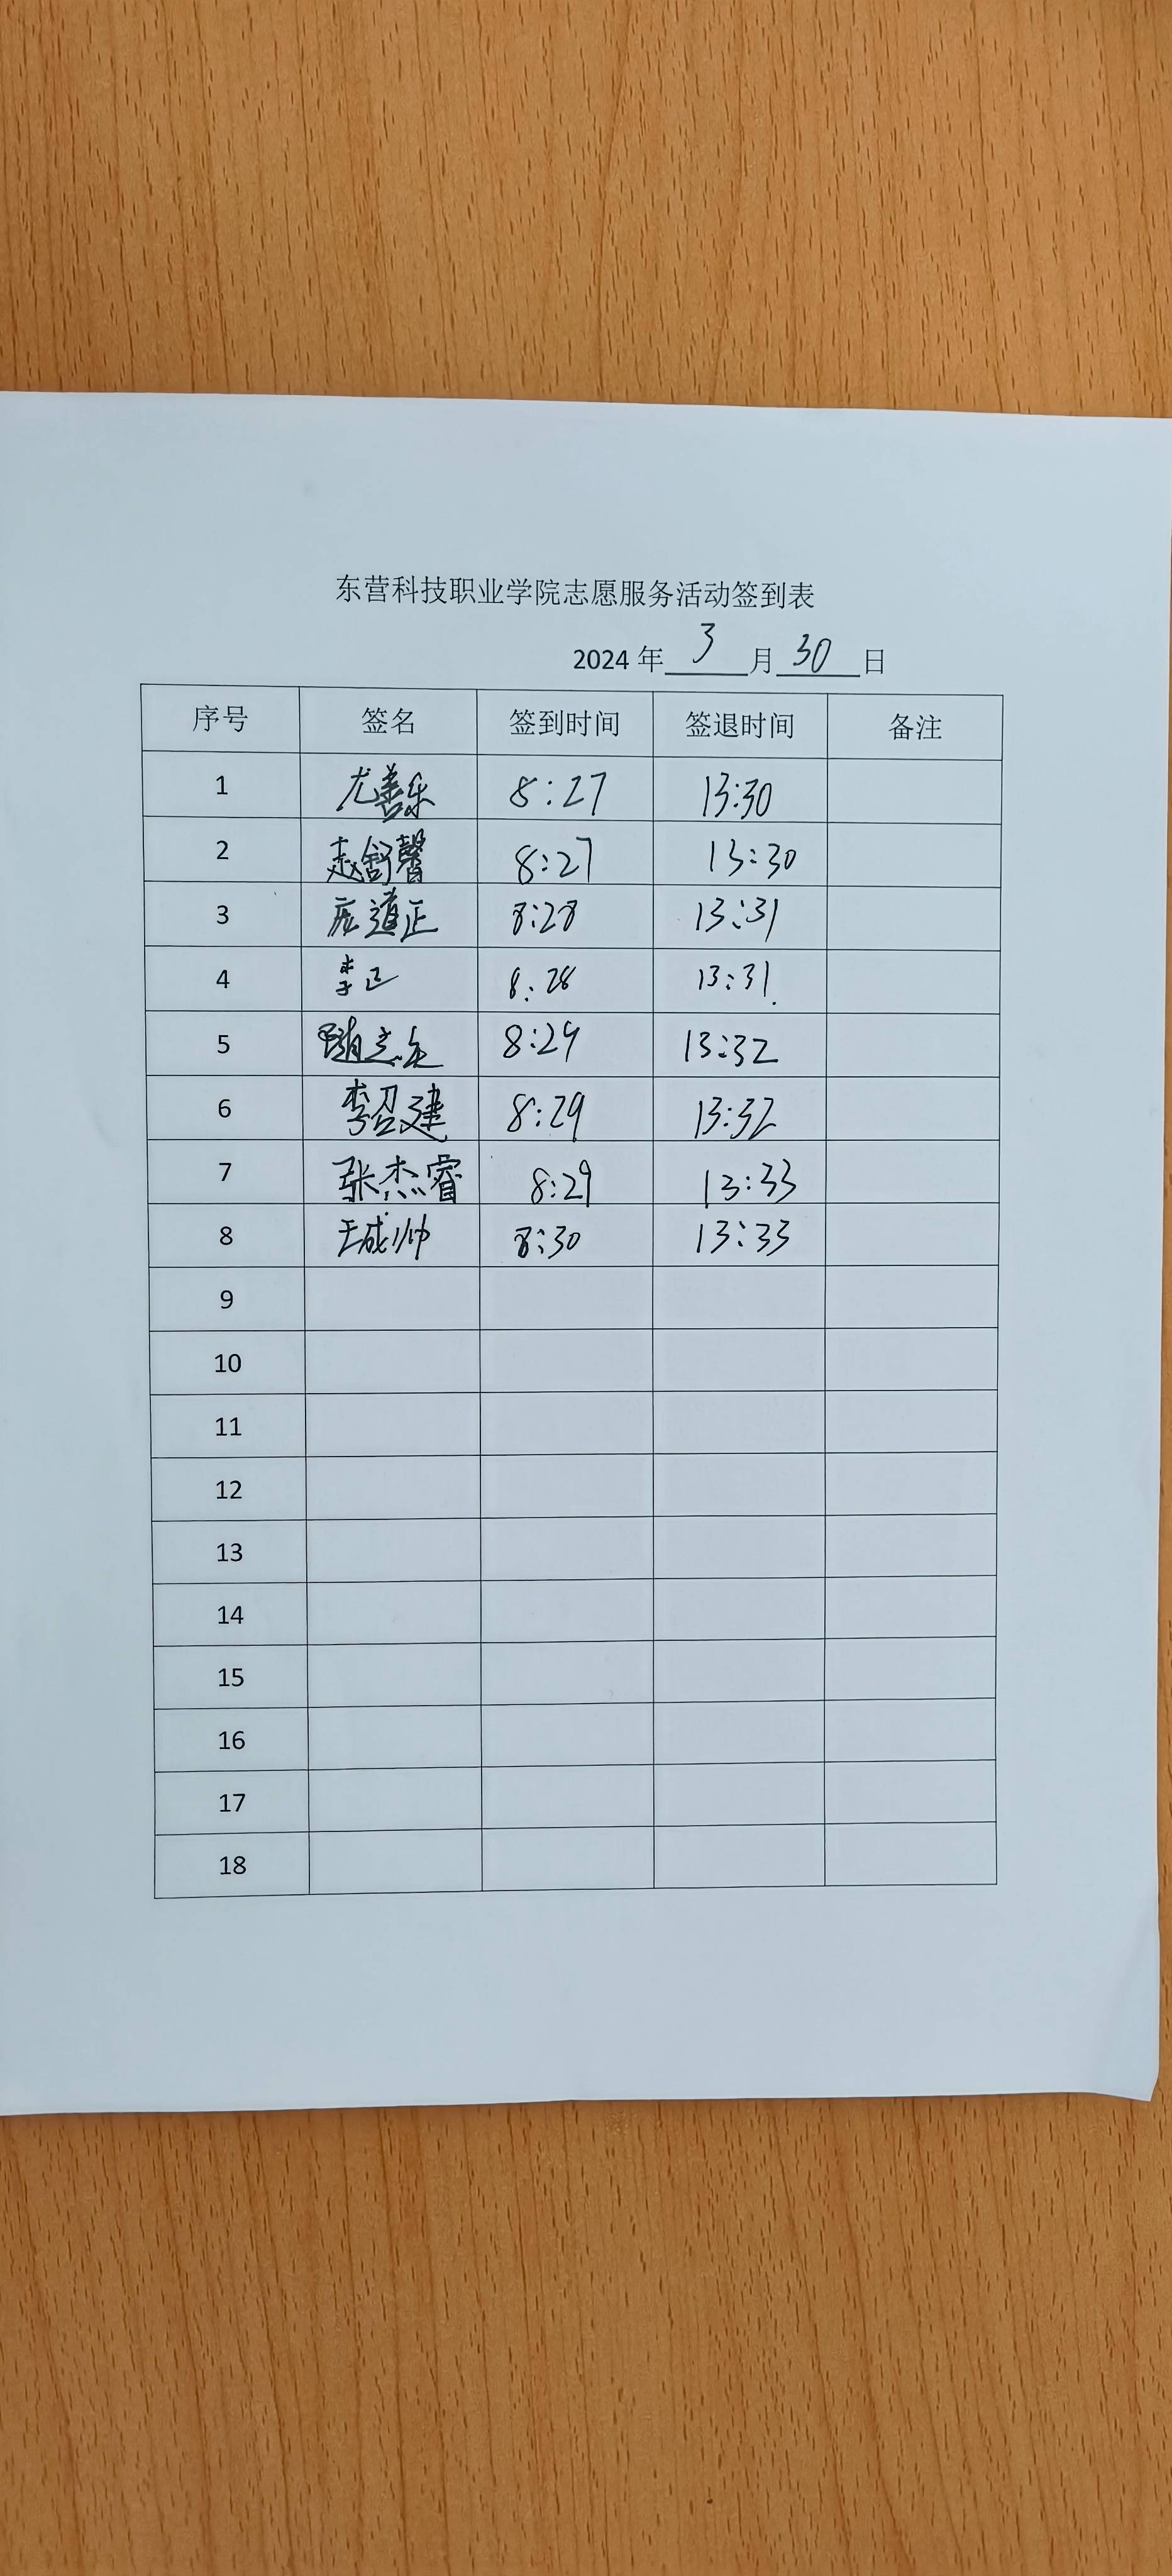 东营科技职业学院志愿服务活动签到表
2024 年 3 月 30 日
序号 签名 签到时间 签退时间 备注
1 尤善乐 8:27 13:30
2 赵舒馨 8:27 13:30
3 庞道正 8:28 13:31
4 李正 8:28 13:31
5 8:29 13:32
6 李召建 8:29 13:32
7 张杰睿 8:29 13:33
8 王成帅 8:30 13:33
9
10
11
12
13
14
15
16
17
18